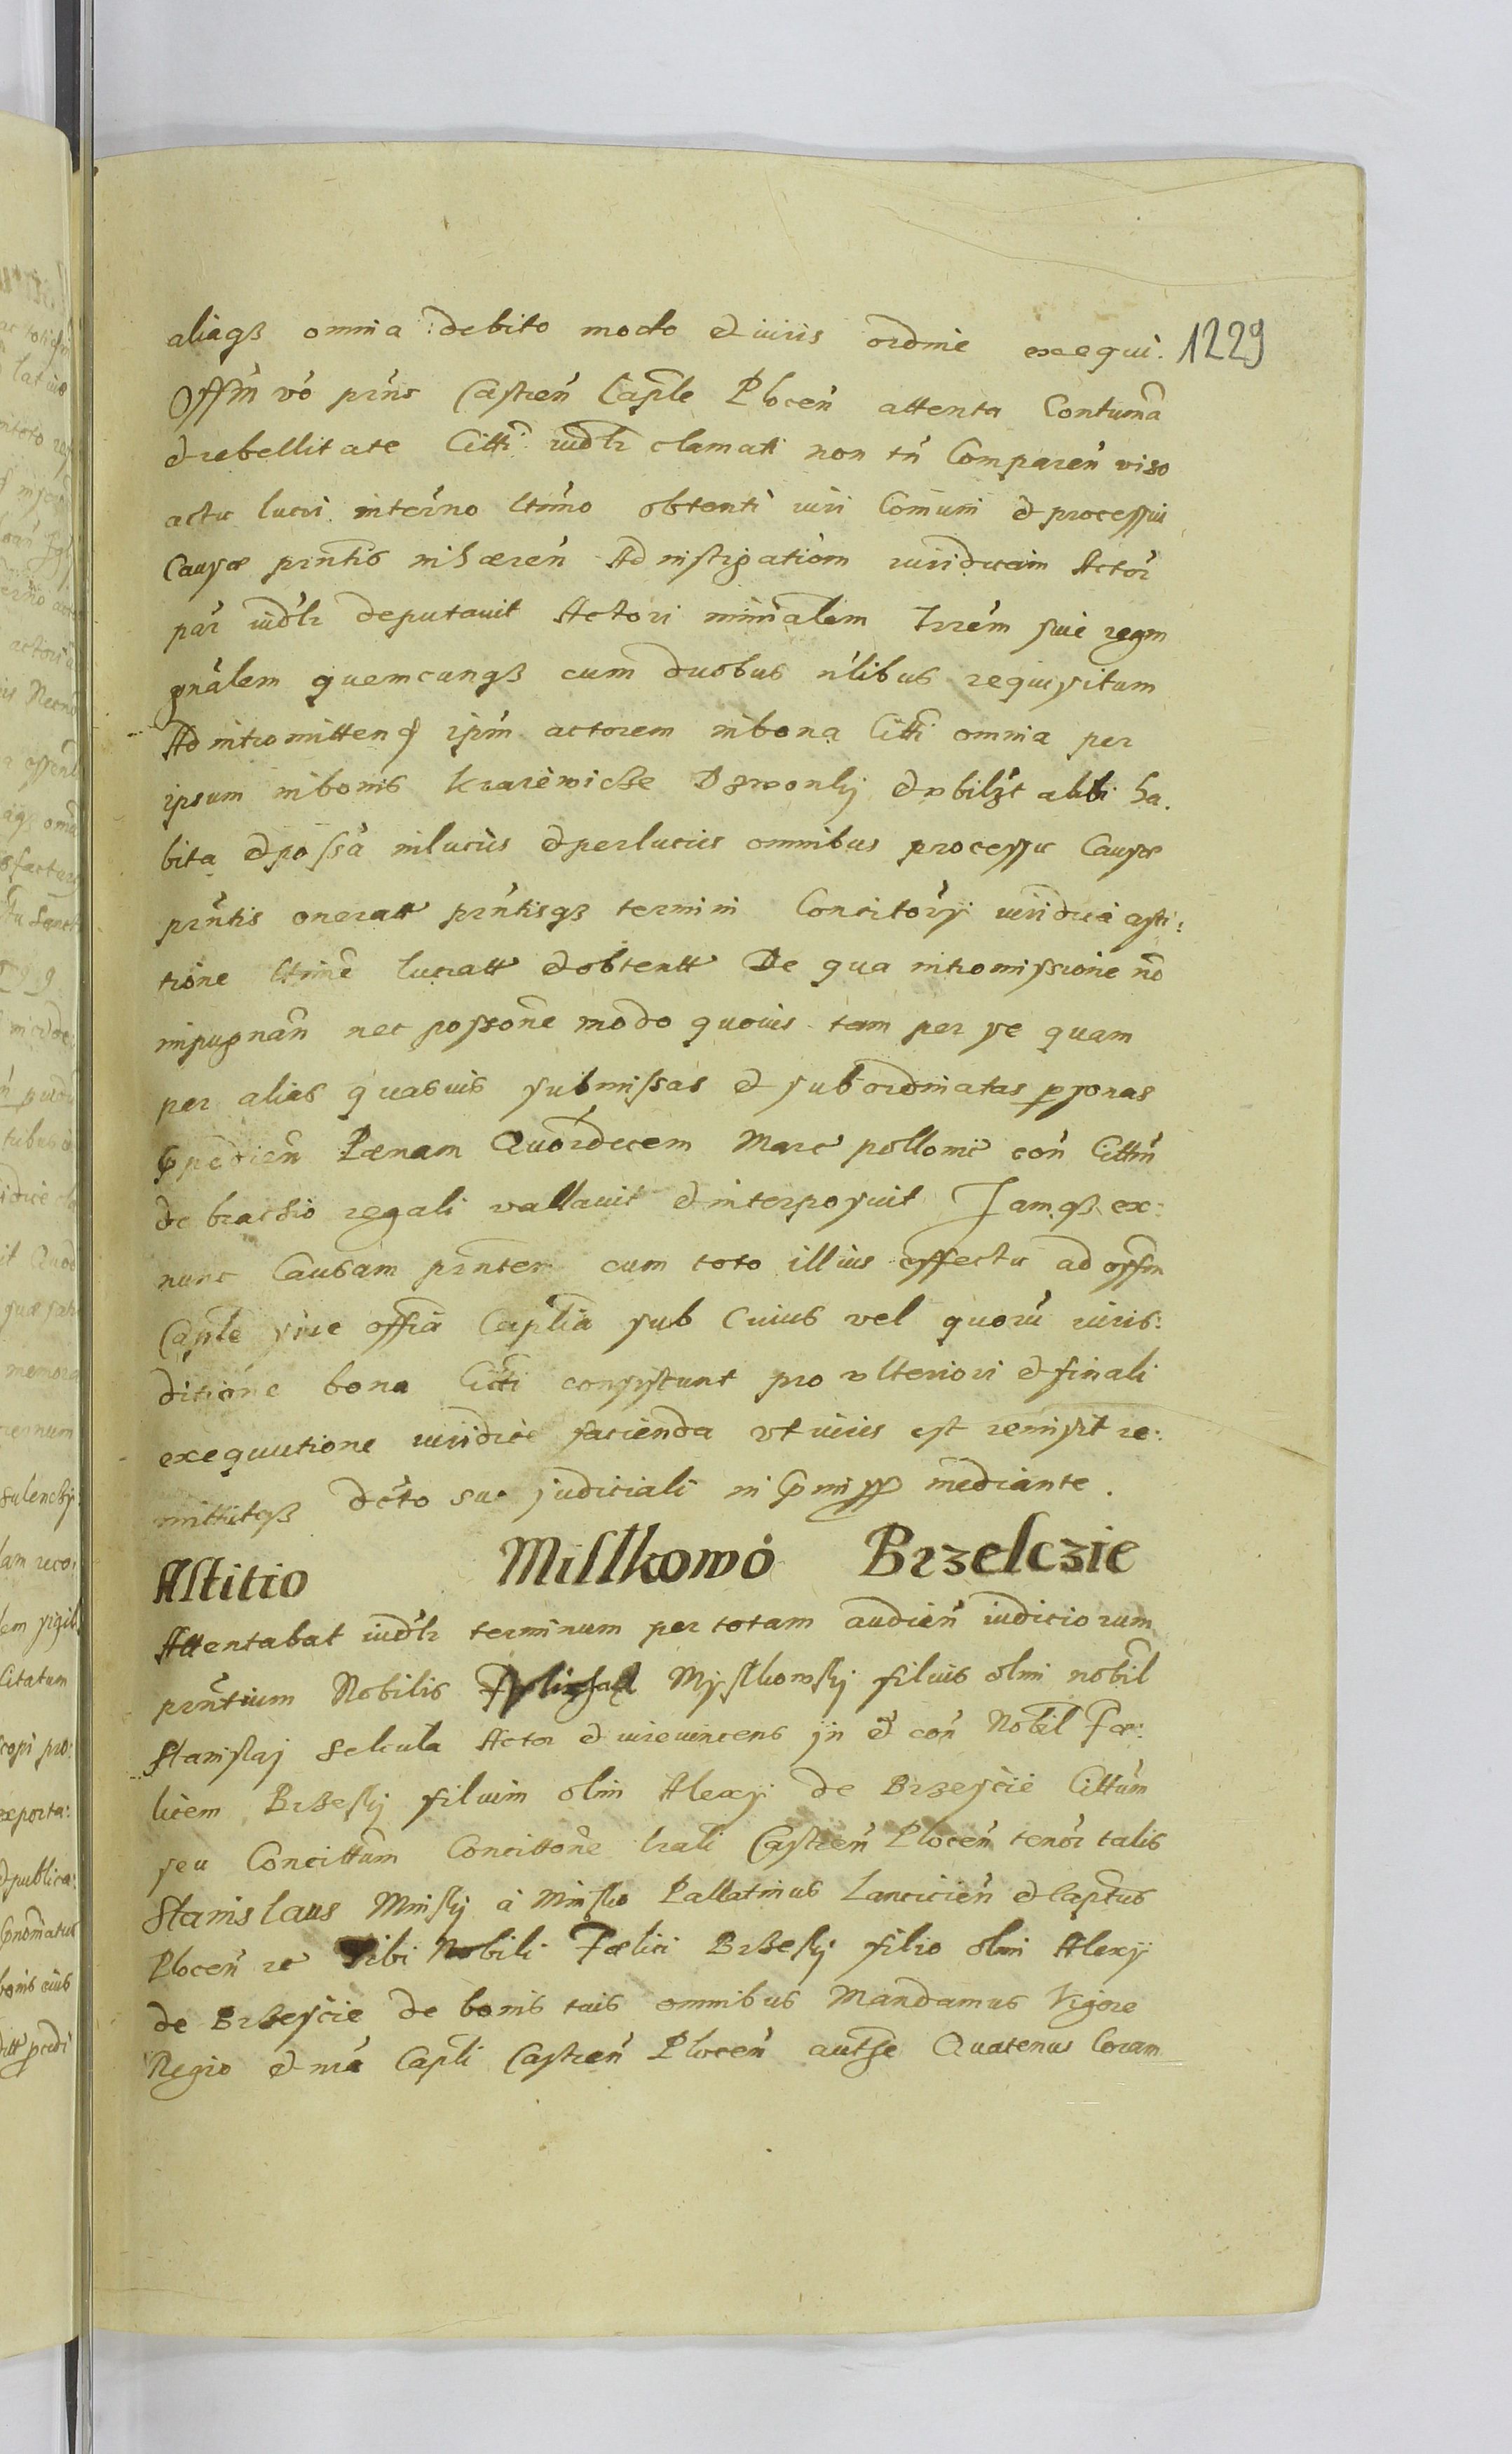 aliaqß omnia debito modo & iuris ordine exequi. 1229
Offm vo prns Castren Caple Plocen attenta Contuma
& rebellitate Citti iudlr clamati non tn Comparen viso
actu lucri in termo ltimo obtenti iuri Comuni & processui
Causæ prntis inhæren Ad instigatiom iuridicam Actor
par iudlr deputavit Actori minialem Trrem sive regni
gnalem quemcunqß cum duobus nlibus requisitum
Ad intromitten ipm actorem in bona Citti omnia per
ipsum in bonis Krarewicße Dzwonky & vbilzt alibi ha.
bita & possa in lucris & perlucris omnibus processu Causæ
prntis oneratt prntisqß termini Concitorÿ iuridica asti:
tione ltime lucratt & obtentt De qua intromissione no
impugnan nec possone modo quovis tam per se quam
per alias quasvis submissas & subordinatas psonas
Impedien Pænam Quordecem Marc pollonic con Cittm
de brachio regali vallavit & interposuit Jamqß ex:
nunc Causam prntem cum toto illius effectu ad offm
Caple sive offia Caplia sub cuius vel quoru iuris:
ditione bona Citti consistunt pro vlteriori & finali
exequutione iuridice facienda vt iuris est remisit re:
mittitqß dcto suo judiciali in pmiss mediante.
Astitio Mistkowo Brzesczie
Attentabat iudlr terminum per totam audien iudiciorum
prntium Nobilis Mÿstkowskÿ filius olim nobil
Stanislaj Sekula Actor & iure vincens jn & con Nobil Fæ:
licem Brßeskÿ filium olim Alexÿ de Brzescie Cittum
seu Concittum Concittone lrali Castren Plocen tenor talis
Stanislaus Minskÿ a Minsko Pallatinus Lancicien & Captus
Plocen re Tibi Nobili Fælici Brßeskÿ filio olim Alexÿ
de Brßescie de bonis tuis omnibus Mandamus Vigore
Regio & nra Capli Castren Plocen autße Quatenus Coram